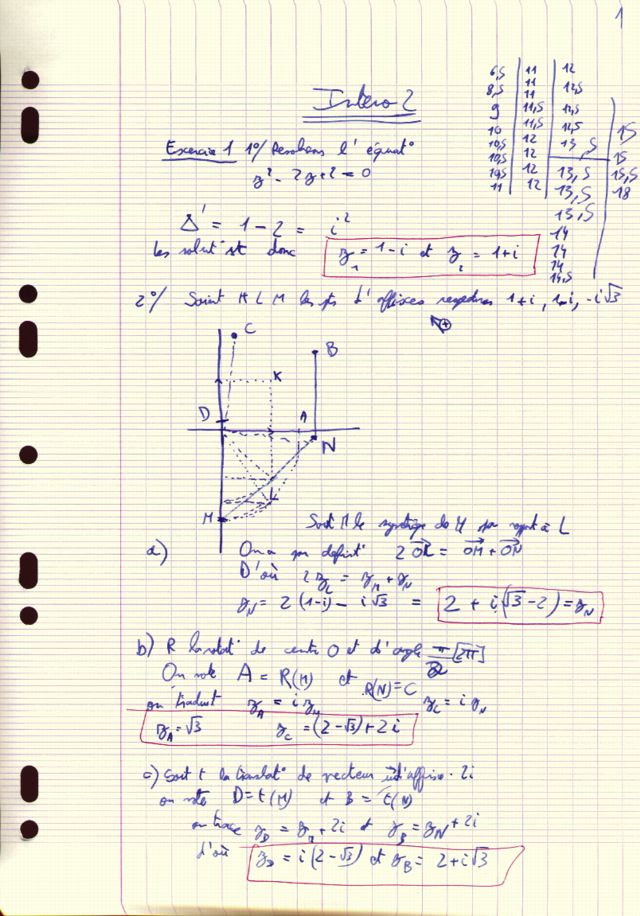 1
Intero 2
6,5 11 12
8,5 11 12,5
9 11 12,5
10 11,5 12,5
10,5 11,5 13,5
10,5 12 13,5
10,5 12 13,5
11 12 13,5
14
14
14
14,5
15
15
15,5
18
Exercice 1 1°/ Resolvons l'équat°
z² - 2z + 2 = 0
Δ' = 1 - 2 = i²
les solut° st donc z₁ = 1 - i et z₂ = 1 + i
2°/ Soient K L M les pts d'affixes respectives 1+i, 1-i, -i√3
C
B
K
D
A
N
L
M
Soit N le symétrique de M par rapport à L
a) On a par definit° 2 OL = OM + ON
D'où 2 z_L = z_M + z_N
z_N = 2 (1-i) - i√3 = 2 + i(√3 - 2) = z_N
b) R la rotat° de centre O et d'angle π/2 [2π]
On note A = R(M) et R(N) = C
on traduit z_A = i z_M z_C = i z_N
z_A = √3 z_C = (2-√3) + 2i
c) Soit t la translat° de vecteur d'affixe 2i
on note D = t(M) et B = t(N)
z_D = z_M + 2i et z_B = z_N + 2i
d'où z_D = i(2-√3) et z_B = 2 + i√3